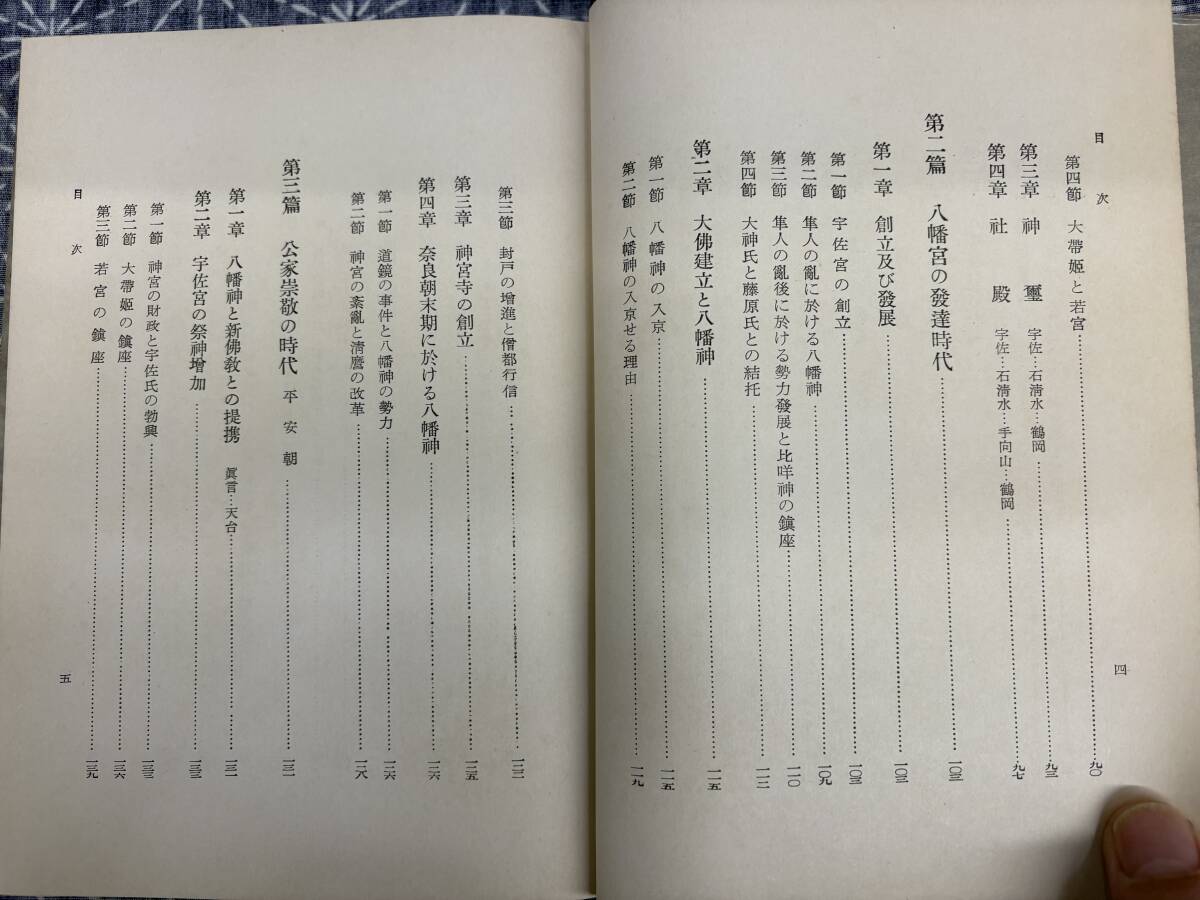 目次
第四節 大帶姬と若宮……九〇
第三章 神璽 宇佐…石清水…鶴岡……九三
第四章 社殿 宇佐…石清水…手向山…鶴岡……九七
第二篇 八幡宮の發達時代……一〇三
第一章 創立及び發展……一〇三
第一節 宇佐宮の創立……一〇三
第二節 隼人の亂に於ける八幡神……一〇九
第三節 隼人の亂後に於ける勢力發展と比咩神の鎭座……一一〇
第四節 大神氏と藤原氏との結托……一一二
第二章 大佛建立と八幡神……一一五
第一節 八幡神の入京……一一五
第二節 八幡神の入京せる理由……一一九
四
第三節 封戸の增進と僧都行信……一二二
第三章 神宮寺の創立……一二五
第四章 奈良朝末期に於ける八幡神……一二六
第一節 道鏡の事件と八幡神の勢力……一二六
第二節 神宮の紊亂と淸麿の改革……一二八
第三篇 公家崇敬の時代 平安朝……一三一
第一章 八幡神と新佛敎との提携 眞言…天台……一三一
第二章 宇佐宮の祭神增加……一三三
第一節 神宮の財政と宇佐氏の勃興……一三三
第二節 大帶姬の鎭座……一三六
第三節 若宮の鎭座……一三九
目次
五